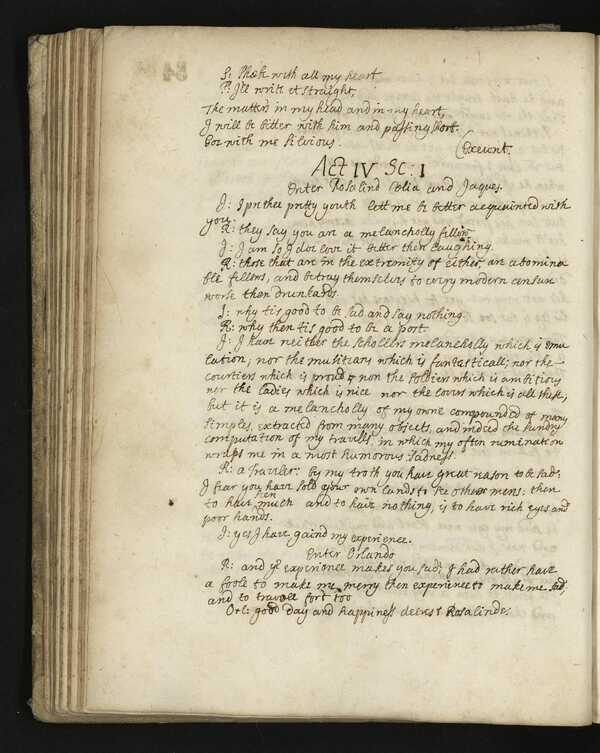 S: Phebe with all my heart
P: I'll write it straight,
The matters in my head and in my heart,
I will be bitter with him and passing short.
Goe with me Silvious. (Exeunt.
Act IV Sc: I
Enter Rosalind Celia and Jaques.
J: I prithee pretty youth lett me be better acquainted with
you.
R: they say you are a melancholly fellow
J: I am so, I doe love it better then laughing.
R: those that are in the extremity of either are abomina
ble fellows, and betray themselves to every modern censure
worse then drunkards.
J: why tis good to be sad and say nothing.
R: why then tis good to be a post.
J: I have neither the schollers melancholly which is emu
lation, nor the musitians which is fantasticall; nor the
courtiers which is proud, nor the soldiers which is ambitious
nor the ladies which is nice nor the lovers which is all these,
but it is a melancholly of my owne compounded of many
simples, extracted from many objects, and indeed the sundry
computation of my travells, in which my often rumination
wraps me in a most humorous sadness.
R: a Traviler: by my troth you have great reason to be sad;
I fear you have sold your own lands to see other mens: then
to have seen much and to have nothing, is to have rich eyes and
poor hands.
J: yes I have gaind my experience.
Enter Orlando
R: and ye experience makes you sad; I had rather have
a foole to make me merry then experience to make me sad,
and to travaile for't too
Orl: good Day and happiness deerest Rosalinde.